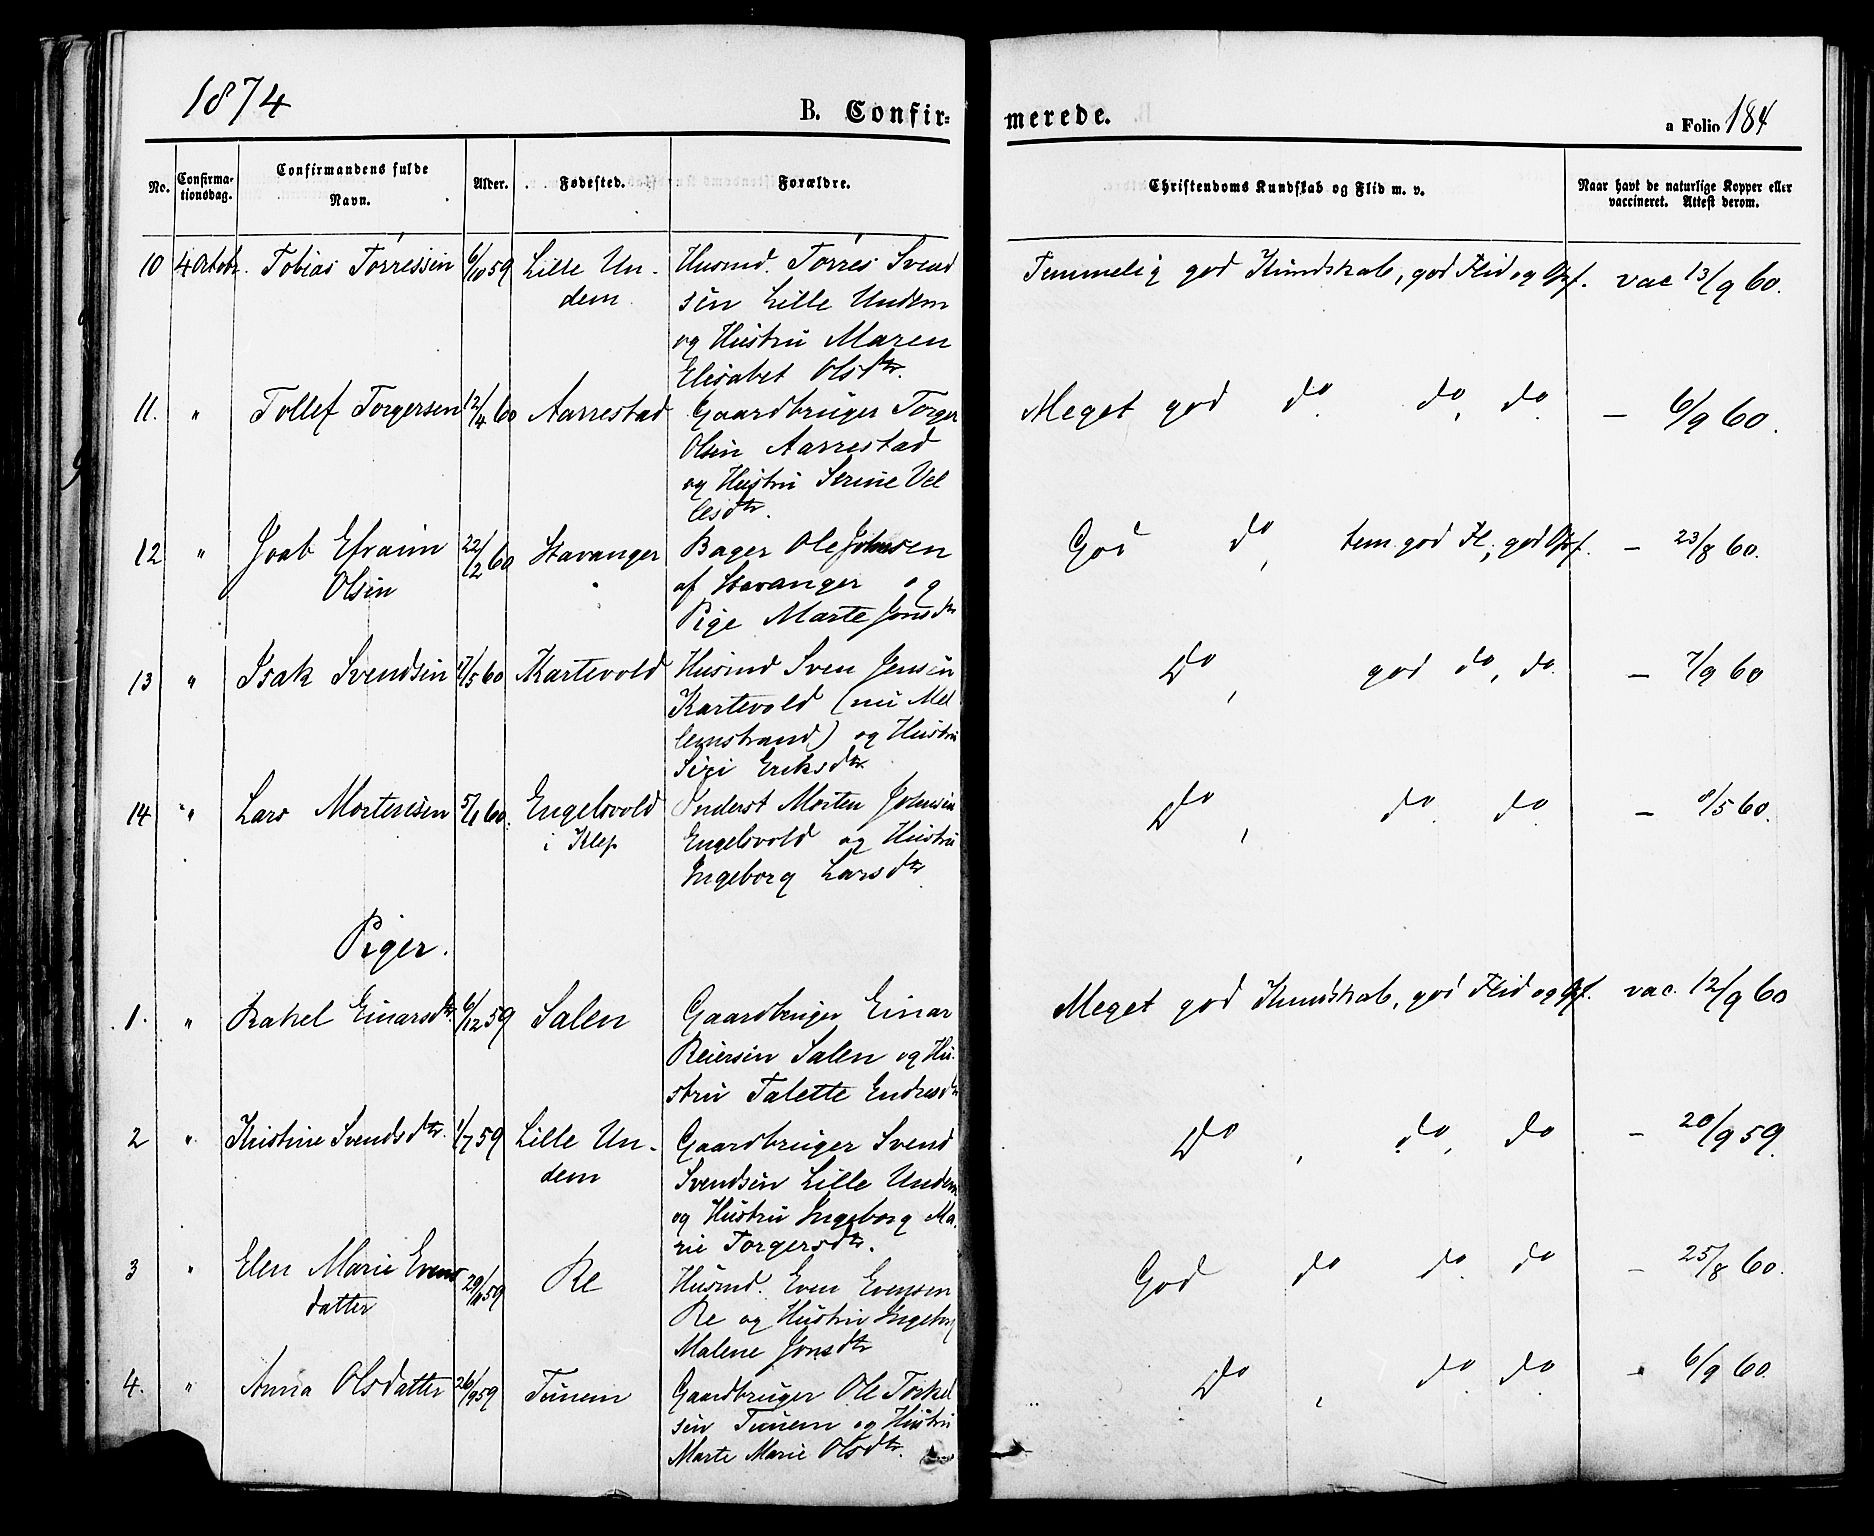 1874
B. Confir=
merede.
a Folio 184
No.
Confirma-
tionsdag.
Confirmandens fulde
Navn.
Alder.
Fødested.
Forældre.
Christendoms Kundskab og Flid m. v.
Naar havt de naturlige Kopper eller
vaccineret. Attest derom.
10 4 Octobr. Tobias Torressen 6/10 59 Lille Un- Husmd. Torres Svend Temmelig god Kundskab, god Flid og Opf. vac 13/9 60.
dem. sen Lille Undem
og Hustru Maren
Elisabet Olsdtr.
11. " Tollef Torgersen 12/4 60 Aarrestad Gaardbruger Torger Meget god do do, do. – 6/9 60.
Olsen Aarrestad
og Hustru Serine Vel
lesdtr.
12 " Joab Efraim 22/2 60 Stavanger Bager Ole Johnsen God do, tem. god Fl, god Opf. – 23/8 60.
Olsen af Stavanger og
Pige Marte Jonsdtr
13 " Isak Svendsen 17/5 60 Kartevold Husmd Sven Jensen Do, god do, do. – 7/9 60
Kartevold (nu Mel
lemstrand) og Hustru
Siri Eriksdtr.
14 " Lars Mortensen 5/1 60. Engelsvold Inderst Morten Johnsen Do, do. do – 8/5 60.
i Klep Engelsvold og Hustru
Ingeborg Larsdtr
Piger.
1. " Rakel Einarsdtr. 6/12 59 Salen Gaardbruger Einar Meget god Kundskab, god Flid og Opf. vac. 12/9 60
Reiersen Salen og Hu-
stru Talette Endresdtr
2 " Kristine Svendsdtr. 1/7 59 Lille Un- Gaardbruger Svend Do, do, do – 20/9 59.
dem Svendsen Lille Undem
og Hustru Ingeborg Ma-
rie Torgersdtr.
3 " Elen Marie Evens 29/11 59 Re Husmd. Even Evensen God do do. do – 25/8 60.
datter Re og Hustru Ingeborg
Malene Jonsdtr
4. " Anna Olsdatter 26/9 59 Tunem Gaardbruger Ole Torkel Do, do. do – 6/9 60.
sen Tunem og Hustru
Marte Marie Olsdtr.